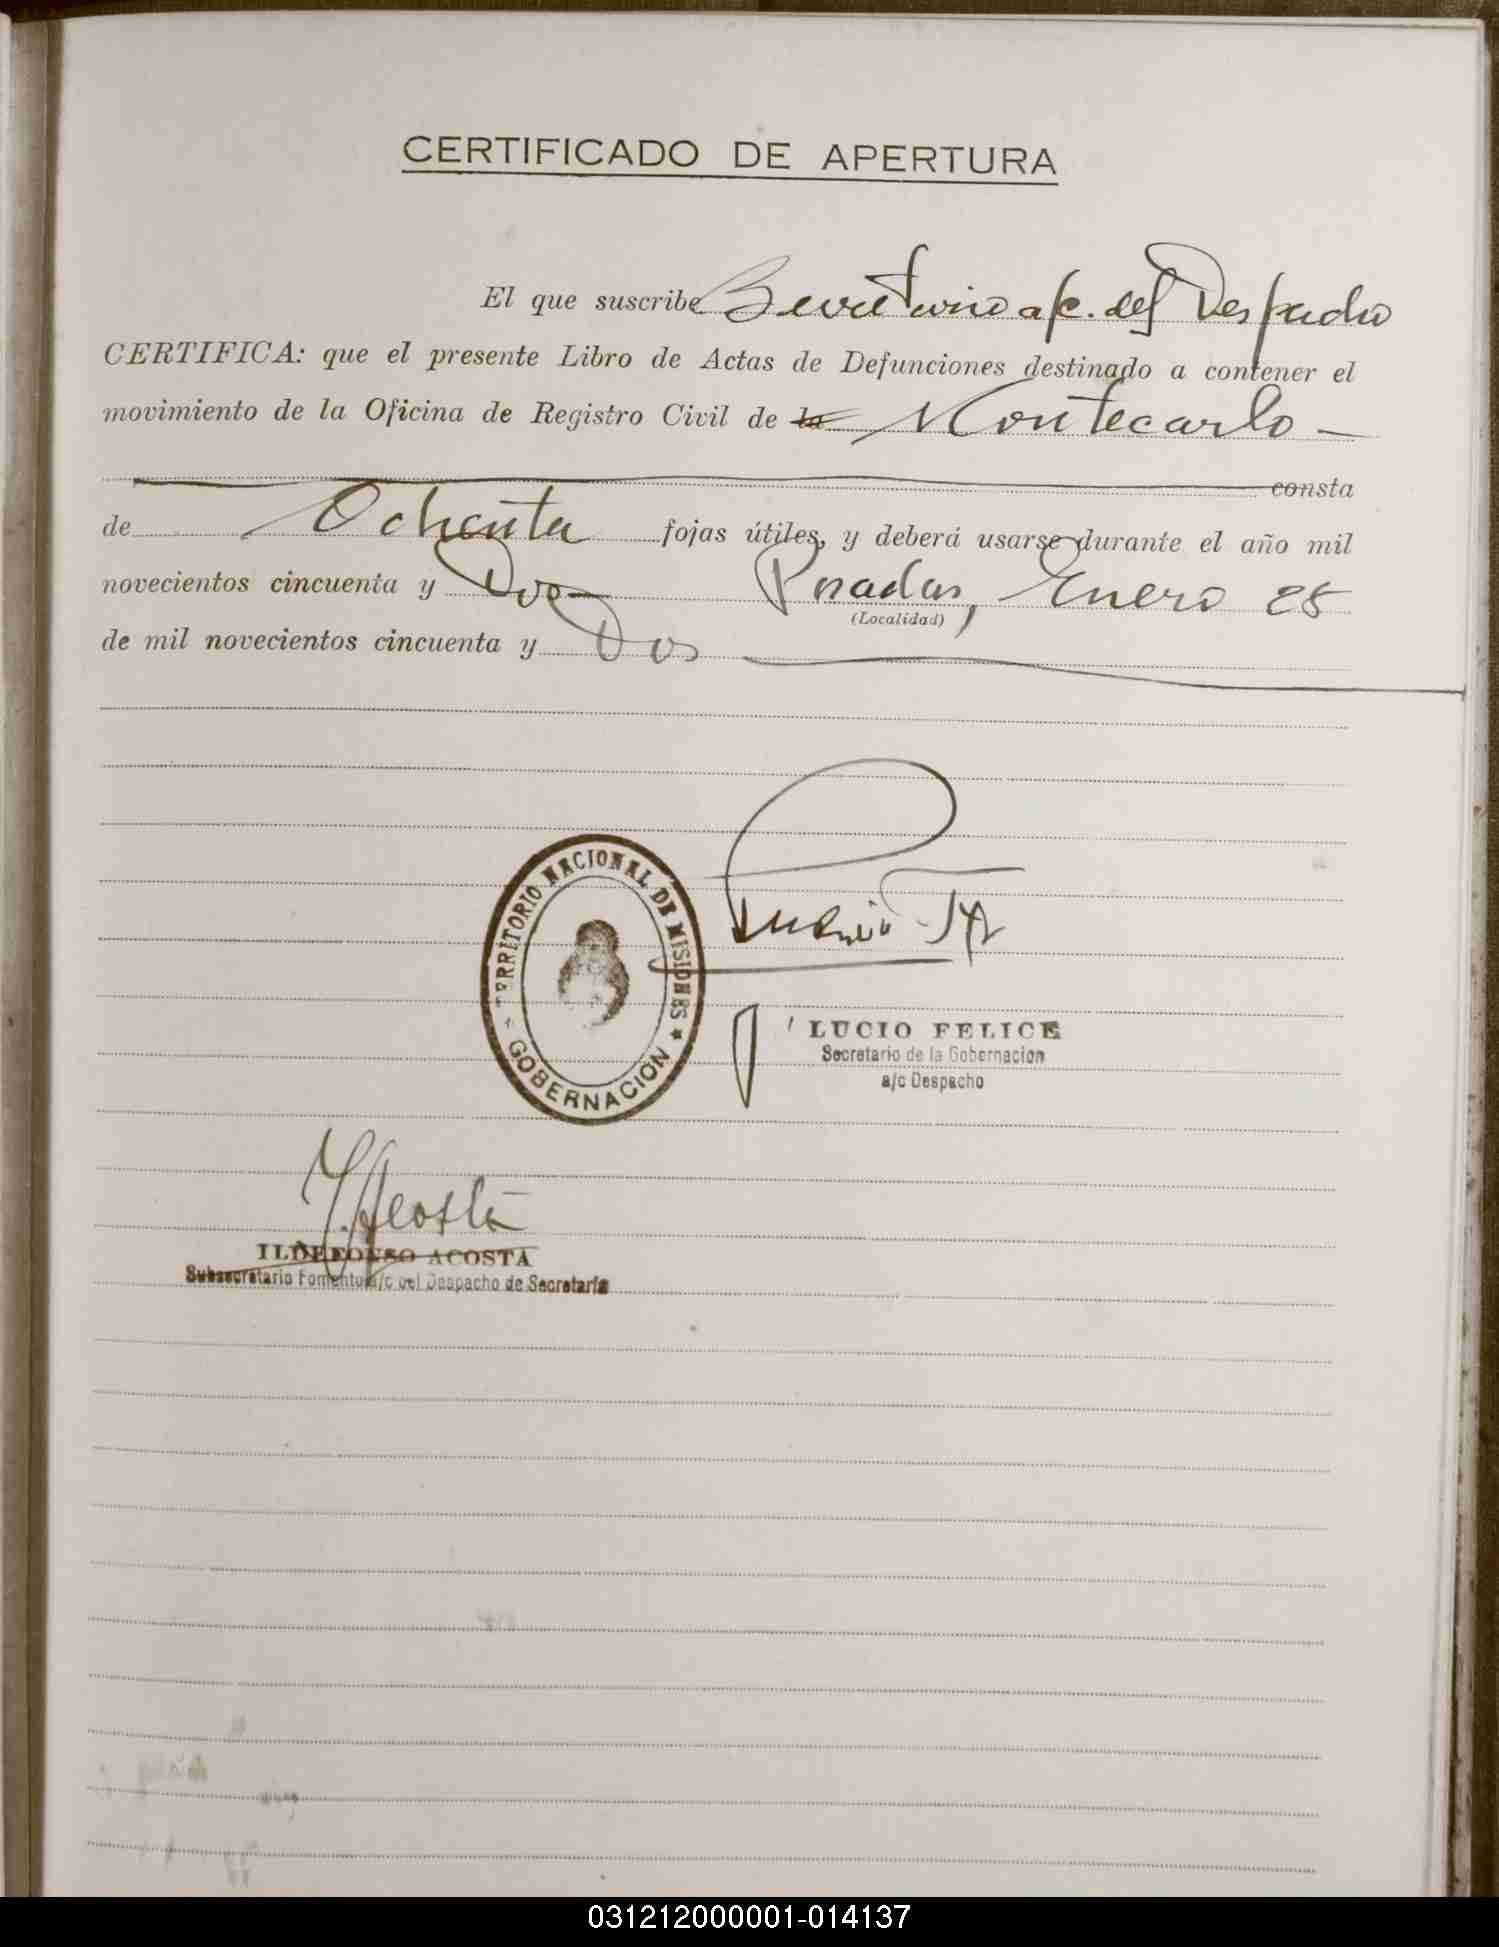 CERTIFICADO DE APERTURA
El que suscribe Secretario a/c. del Despacho
CERTIFICA: que el presente Libro de Actas de Defunciones destinado a contener el
movimiento de la Oficina de Registro Civil de la Montecarlo —
consta
de Ochenta fojas útiles, y deberá usarse durante el año mil
novecientos cincuenta y Dos— Posadas, Enero 25
(Localidad)
de mil novecientos cincuenta y Dos
TERRITORIO NACIONAL DE MISIONES ★
GOBERNACION
LUCIO FELICE
Secretario de la Gobernacion
a/c Despacho
I. Acosta
ILDEFONSO ACOSTA
Subsecretario Fomento a/c del Despacho de Secretaría
031212000001-014137